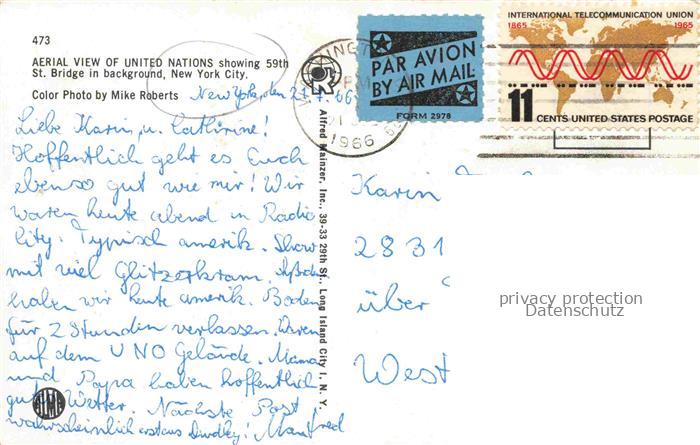 473
AERIAL VIEW OF UNITED NATIONS showing 59th
St. Bridge in background, New York City.
Color Photo by Mike Roberts
New York, den 21.7.66
Liebe Karin, u. Cathrine!
Hoffentlich geht es Euch
ebenso gut wie mir! Wir
waren heute abend in Radio
City. Typisch amerik. Show
mit viel Glitzerkram. Außerdem
haben wir heute amerik. Boden
für 2 Stunden verlassen. Waren
auf dem UNO Gelände. Mama
und Papa haben hoffentlich
gutes Wetter. Nächste Post
wahrscheinlich erst aus! Manfred
ALMA
Alfred Mainzer, Inc., 39-33 29th St., Long Island City 1, N. Y.
1966
PAR AVION
BY AIR MAIL
FORM 2978
INTERNATIONAL TELECOMMUNICATION UNION
1865 1965
11 CENTS UNITED STATES POSTAGE
Karin
2831
über
West
privacy protection
Datenschutz